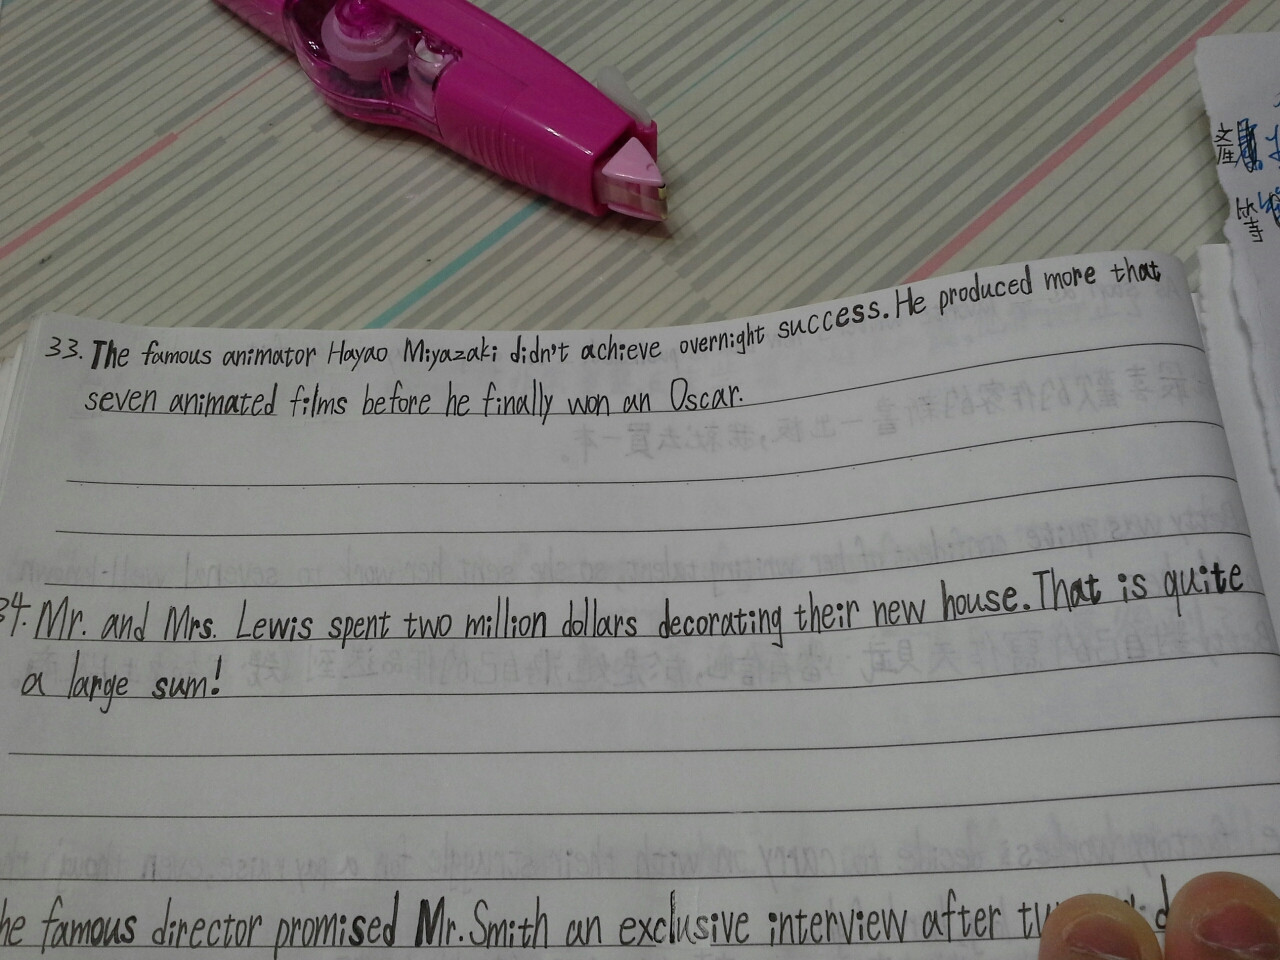 33. The famous animator Hayao Miyazaki didn't achieve overnight success. He produced more that
seven animated films before he finally won an Oscar.
34. Mr. and Mrs. Lewis spent two million dollars decorating their new house. That is quite
a large sum!
he famous director promised Mr. Smith an exclusive interview after